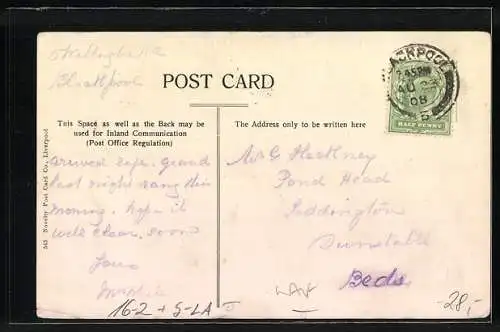 Blackpool
POST CARD
This Space as well as the Back may be
used for Inland Communication
(Post Office Regulation)
The Address only to be written here
BLACKPOOL
2.45PM
AU
08
HALF PENNY
arrived safe. grand
last night rang this
morning. hope it
will clear soon
Yours
Mr G Hackney
Pond Head
Dunstable
Beds
543 Novelty Post Card Co., Liverpool
16-2 + S-LA
28,-